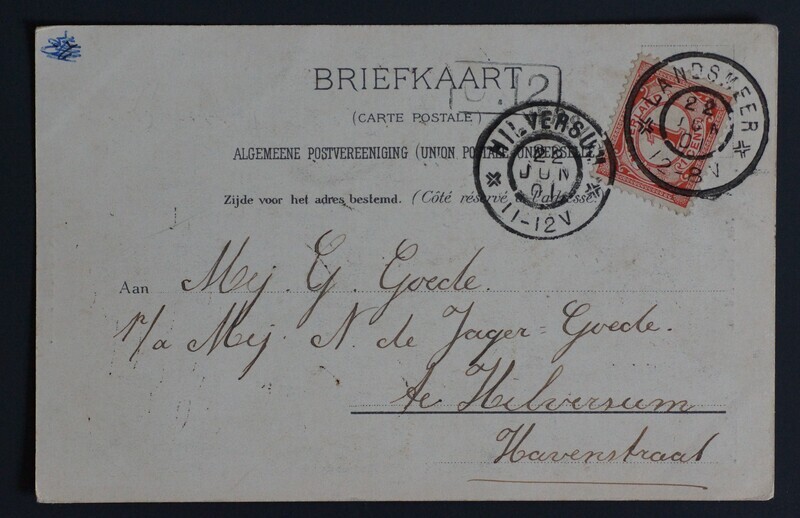 BRIEFKAART
(CARTE POSTALE)
ALGEMEENE POSTVEREENIGING (UNION POSTALE UNIVERSELLE)
Zijde voor het adres bestemd. (Côté réservé à l'adresse)
HILVERSUM
22
JUN
01
11-12V
LANDSMEER
22
JUN
01
12-8V
12
Aan Mej. G. Goede.
p/a Mej. N. de Jager=Goede.
te Hilversum
Havenstraat